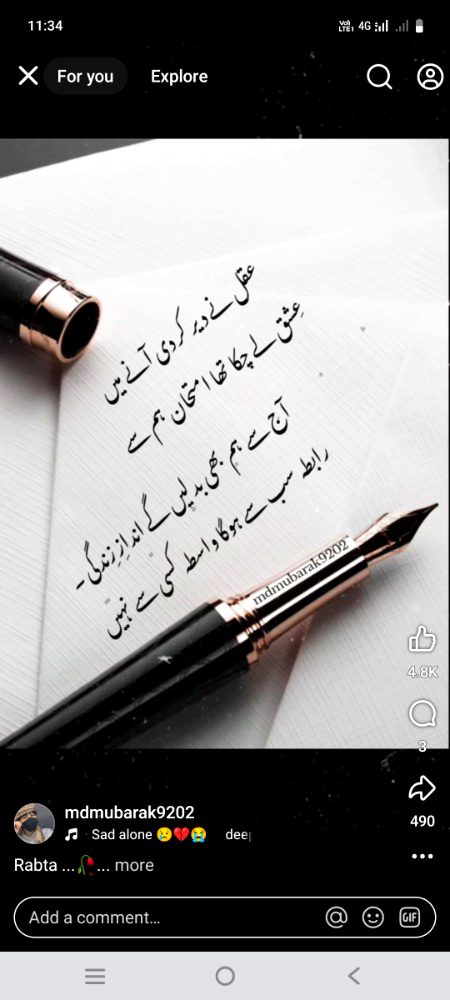 11:34
Vo) LTE1 4G
For you
Explore
عقل نے دیر کر دی آنے میں
عِشق لے چکا تھا امتحان ہم سے
آج سے ہم بھی بدلیں گے اندازِ زندگی۔
رابطہ سب سے ہوگا واسطہ کسی سے نہیں
mdmubarak9202
4.8K
3
490
mdmubarak9202
Sad alone 😢💔😭 deep
Rabta ...🥀... more
Add a comment...
GIF